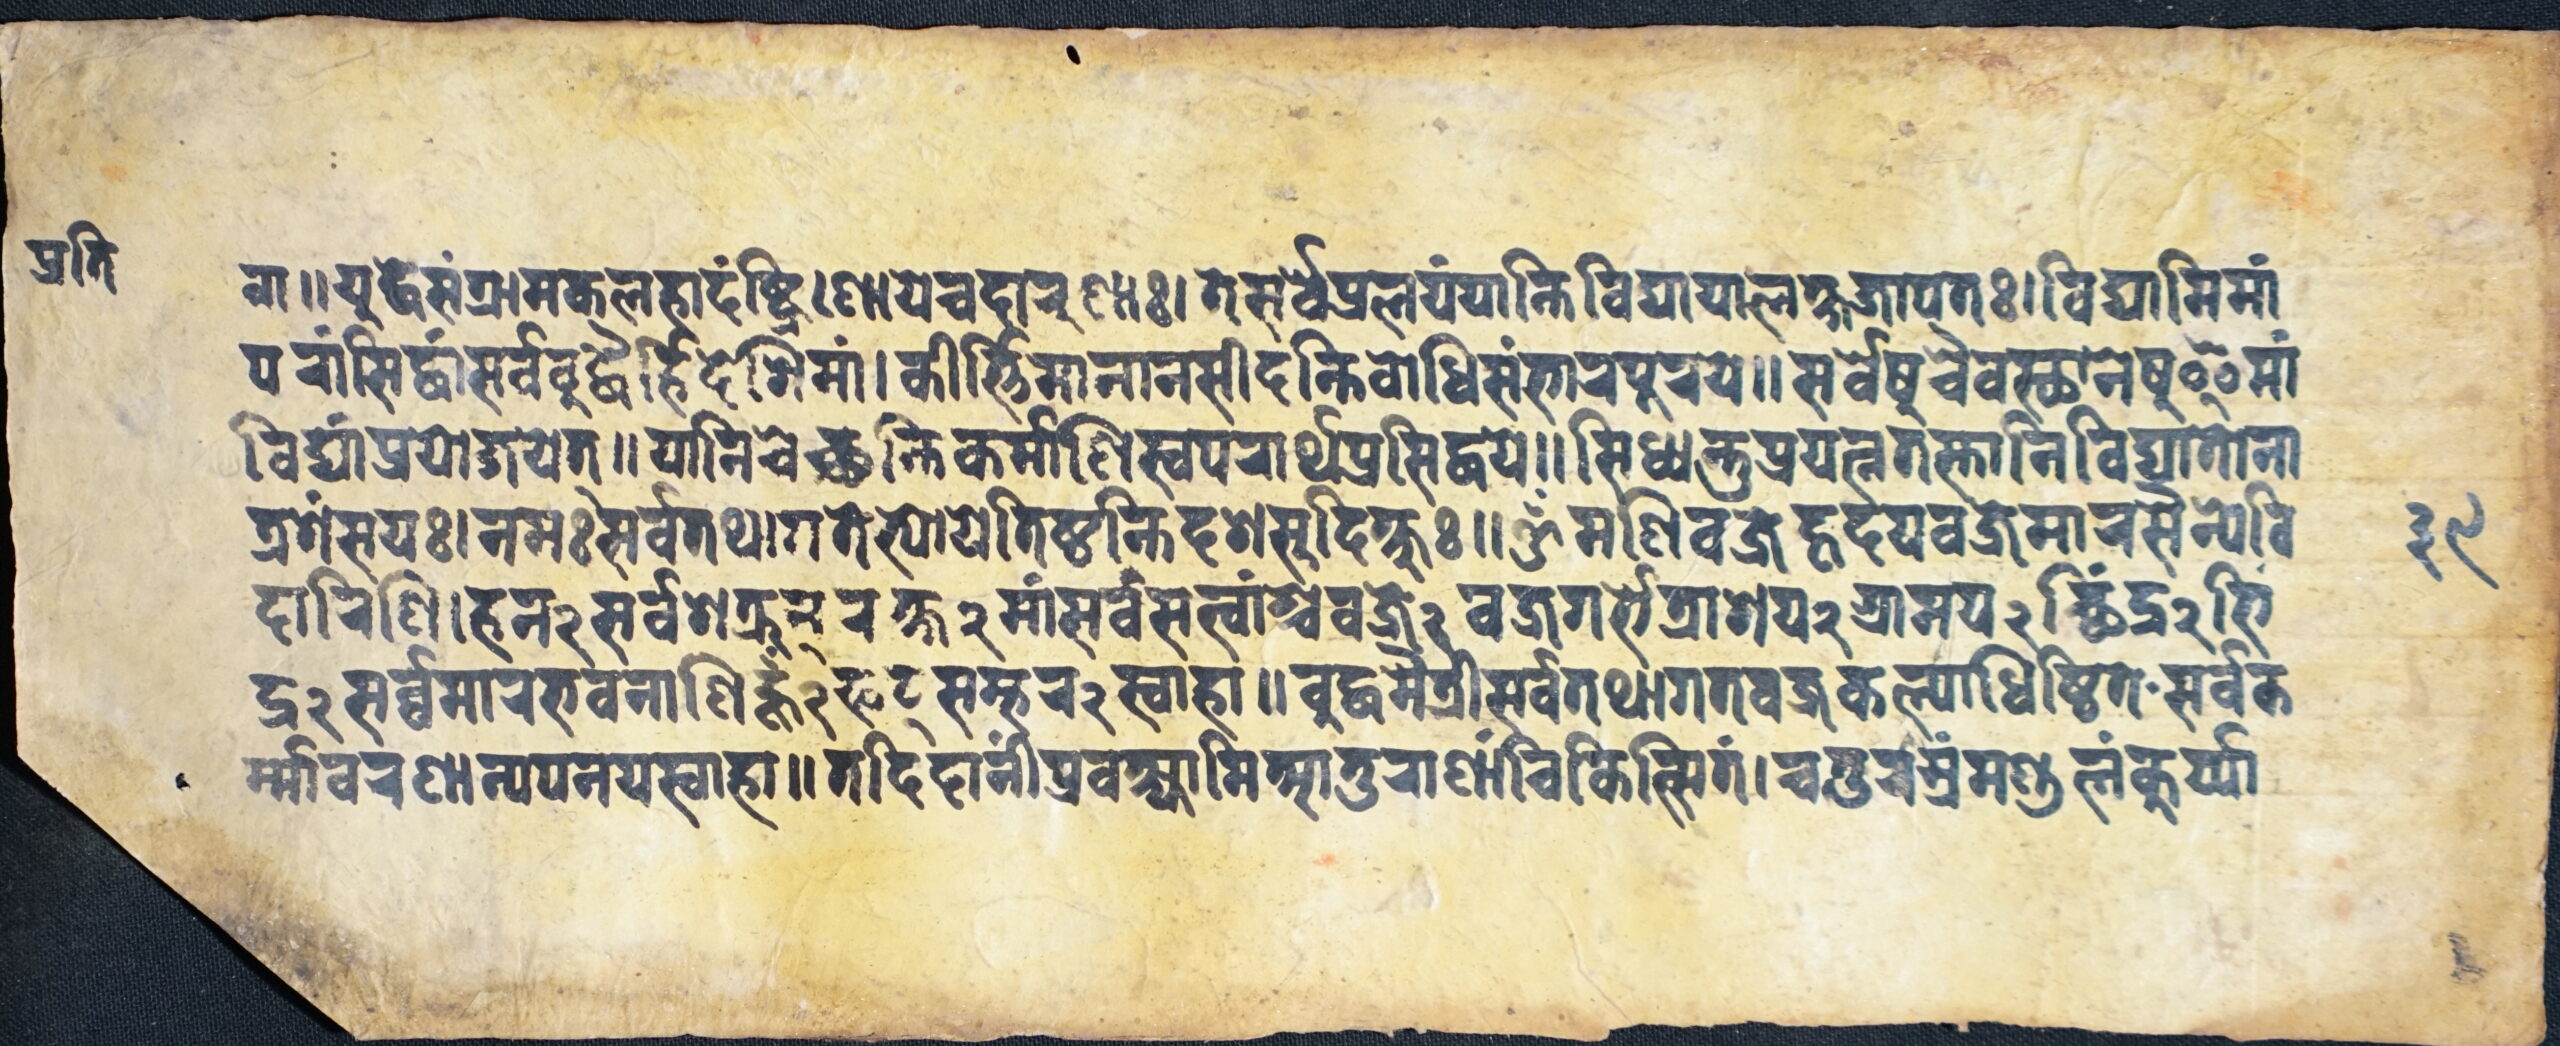 प्रति
वा॥युद्धेसंग्रामकलहादंष्ट्रिणोयेचदारुणाः।तेसर्वेप्रलयंयान्तिविद्यायालक्षजापतः।विद्यामिमां
परांसिद्धांसर्वबुद्धैर्हिदेशिमां।कीर्त्तिमानानसीदन्तिबोधिसंभारपुरये॥सर्वेषुचैवस्छानेषुइमां
विद्यांप्रयोजयेत्॥यानिचेच्छन्तिकर्माणिस्वपरार्थप्रसिद्धये॥सिध्यन्तुप्रयत्नतस्तानिविद्यातोना
त्रशंसयः।नमःसर्वतथागतेभ्योयेतिष्ठन्तिदशसुदिक्षुः॥ॐमणिवज्रेहृदयवज्रेमारसैन्येवि
दारिणि।हन२सर्वशत्रुन्रक्ष२मांसर्वसत्वांश्चवज्रे२वज्रगर्भेत्राशय२भ्रामय२छिंद्र२भिं
द्र२सर्व्वमारभवनाणिहूं२फट्सम्भर२स्वाहा॥बुद्धमैत्रीसर्वतथागतवज्रकल्पाधिष्ठिते·सर्वक
र्म्मावरणान्यपनयस्वाहा॥तदिदानींप्रवक्ष्यामिआतुराणांचिकित्सितं।चतुरस्रंमण्डलंकुर्य्या
३९